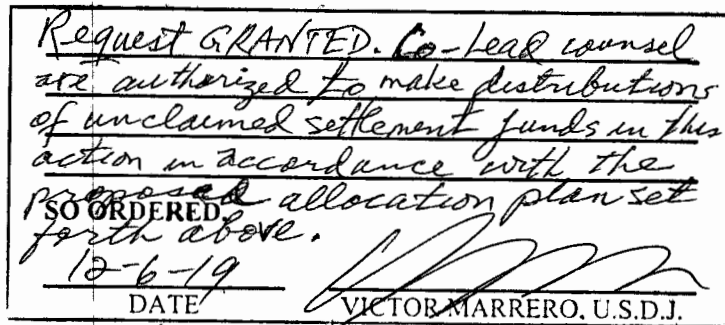 Request GRANTED. Co-Lead counsel
are authorized to make distributions
of unclaimed settlement funds in this
action in accordance with the
proposed allocation plan set
SO ORDERED.
forth above.
12-6-19
DATE VICTOR MARRERO, U.S.D.J.